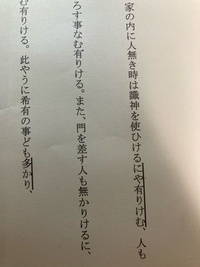 家の内に人無き時は識神を使ひけるにや有りけむ、人も
ろす事なむ有りける。また、門を差す人も無かりけるに、
む有りける。此やうに希有の事ども多かり、